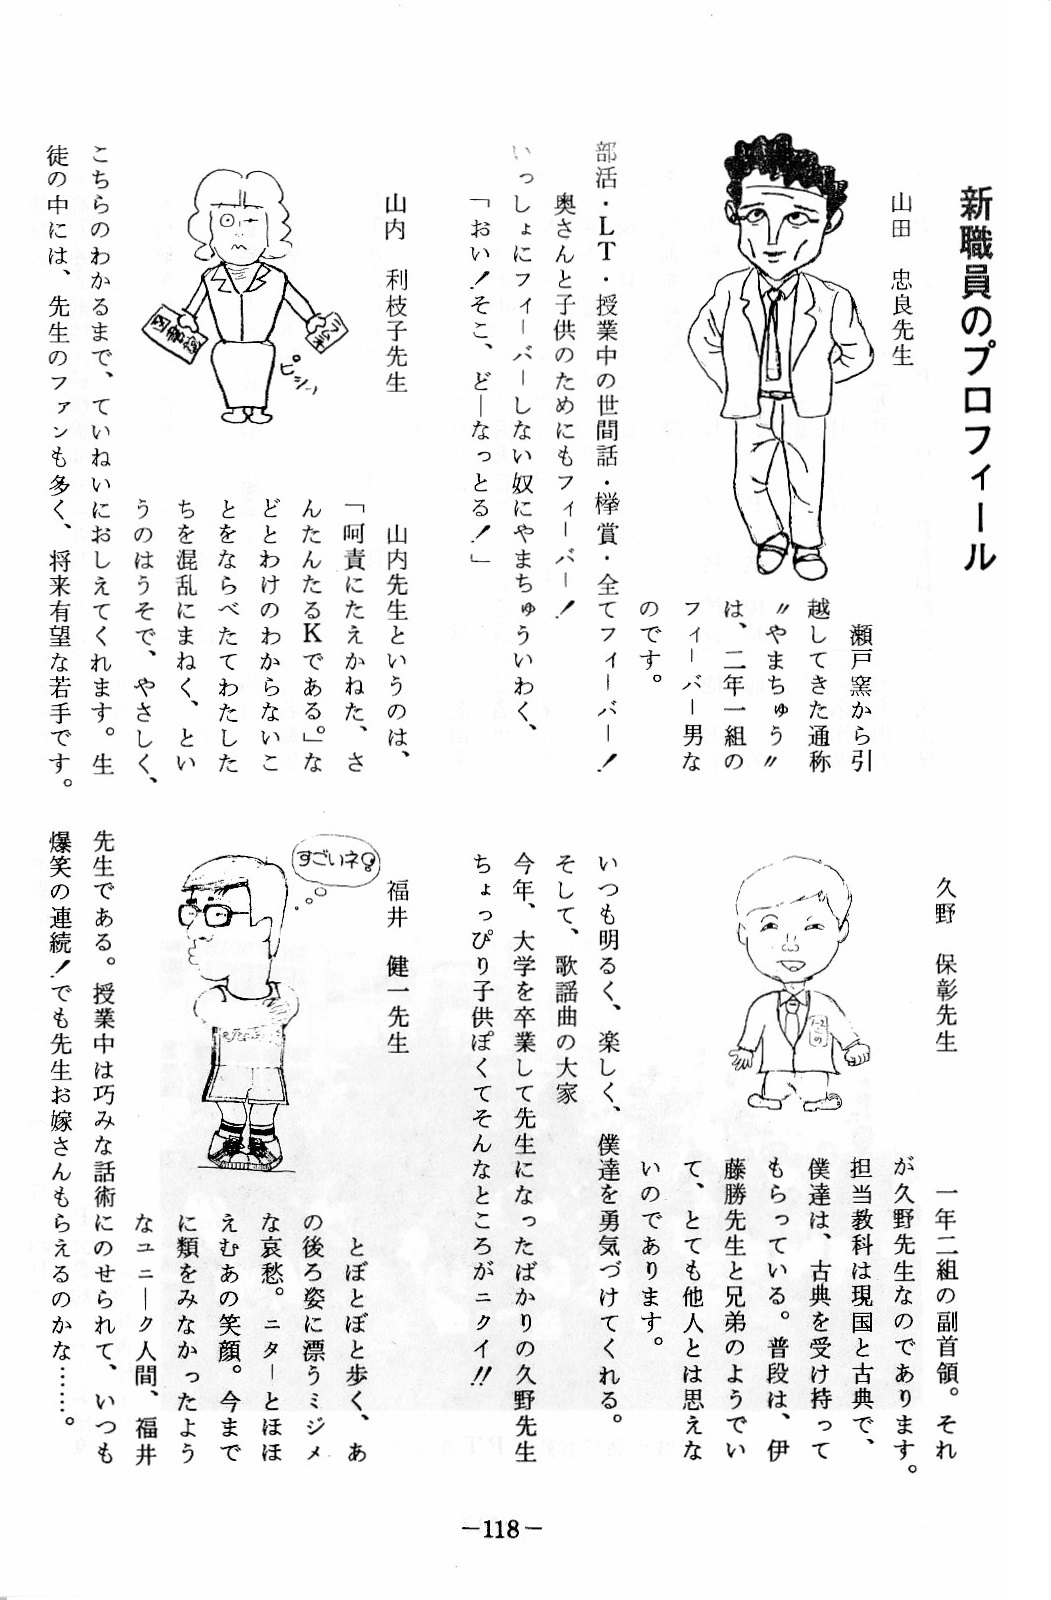 新職員のプロフィール
山田　忠良先生
瀬戸窯から引
越してきた通称
〃やまちゅう〃
は、二年一組の
フィーバー男な
のです。
部活・LT・授業中の世間話・欅賞・全てフィーバー！
奥さんと子供のためにもフィーバー！
いっしょにフィーバーしない奴にやまちゅういわく、
「おい！そこ、どーなっとる！」
山内　利枝子先生
ピシッ
山内先生というのは、
「呵責にたえかねた、さ
んたんたるKである。」な
どとわけのわからないこ
とをならべたてわたした
ちを混乱にまねく、とい
うのはうそで、やさしく、
こちらのわかるまで、ていねいにおしえてくれます。生
徒の中には、先生のファンも多く、将来有望な若手です。
久野　保彰先生
一年二組の副首領。それ
が久野先生なのであります。
担当教科は現国と古典で、
僕達は、古典を受け持って
もらっている。普段は、伊
藤勝先生と兄弟のようでい
て、とても他人とは思えな
いのであります。
いつも明るく、楽しく、僕達を勇気づけてくれる。
そして、歌謡曲の大家
今年、大学を卒業して先生になったばかりの久野先生
ちょっぴり子供ぽくてそんなところがニクイ!!
福井　健一先生
すごいネ!
とぼとぼと歩く、あ
の後ろ姿に漂うミジメ
な哀愁。ニターとほほ
えむあの笑顔。今まで
に類をみなかったよう
なユニーク人間、福井
先生である。授業中は巧みな話術にのせられて、いつも
爆笑の連続！でも先生お嫁さんもらえるのかな……。
—118—